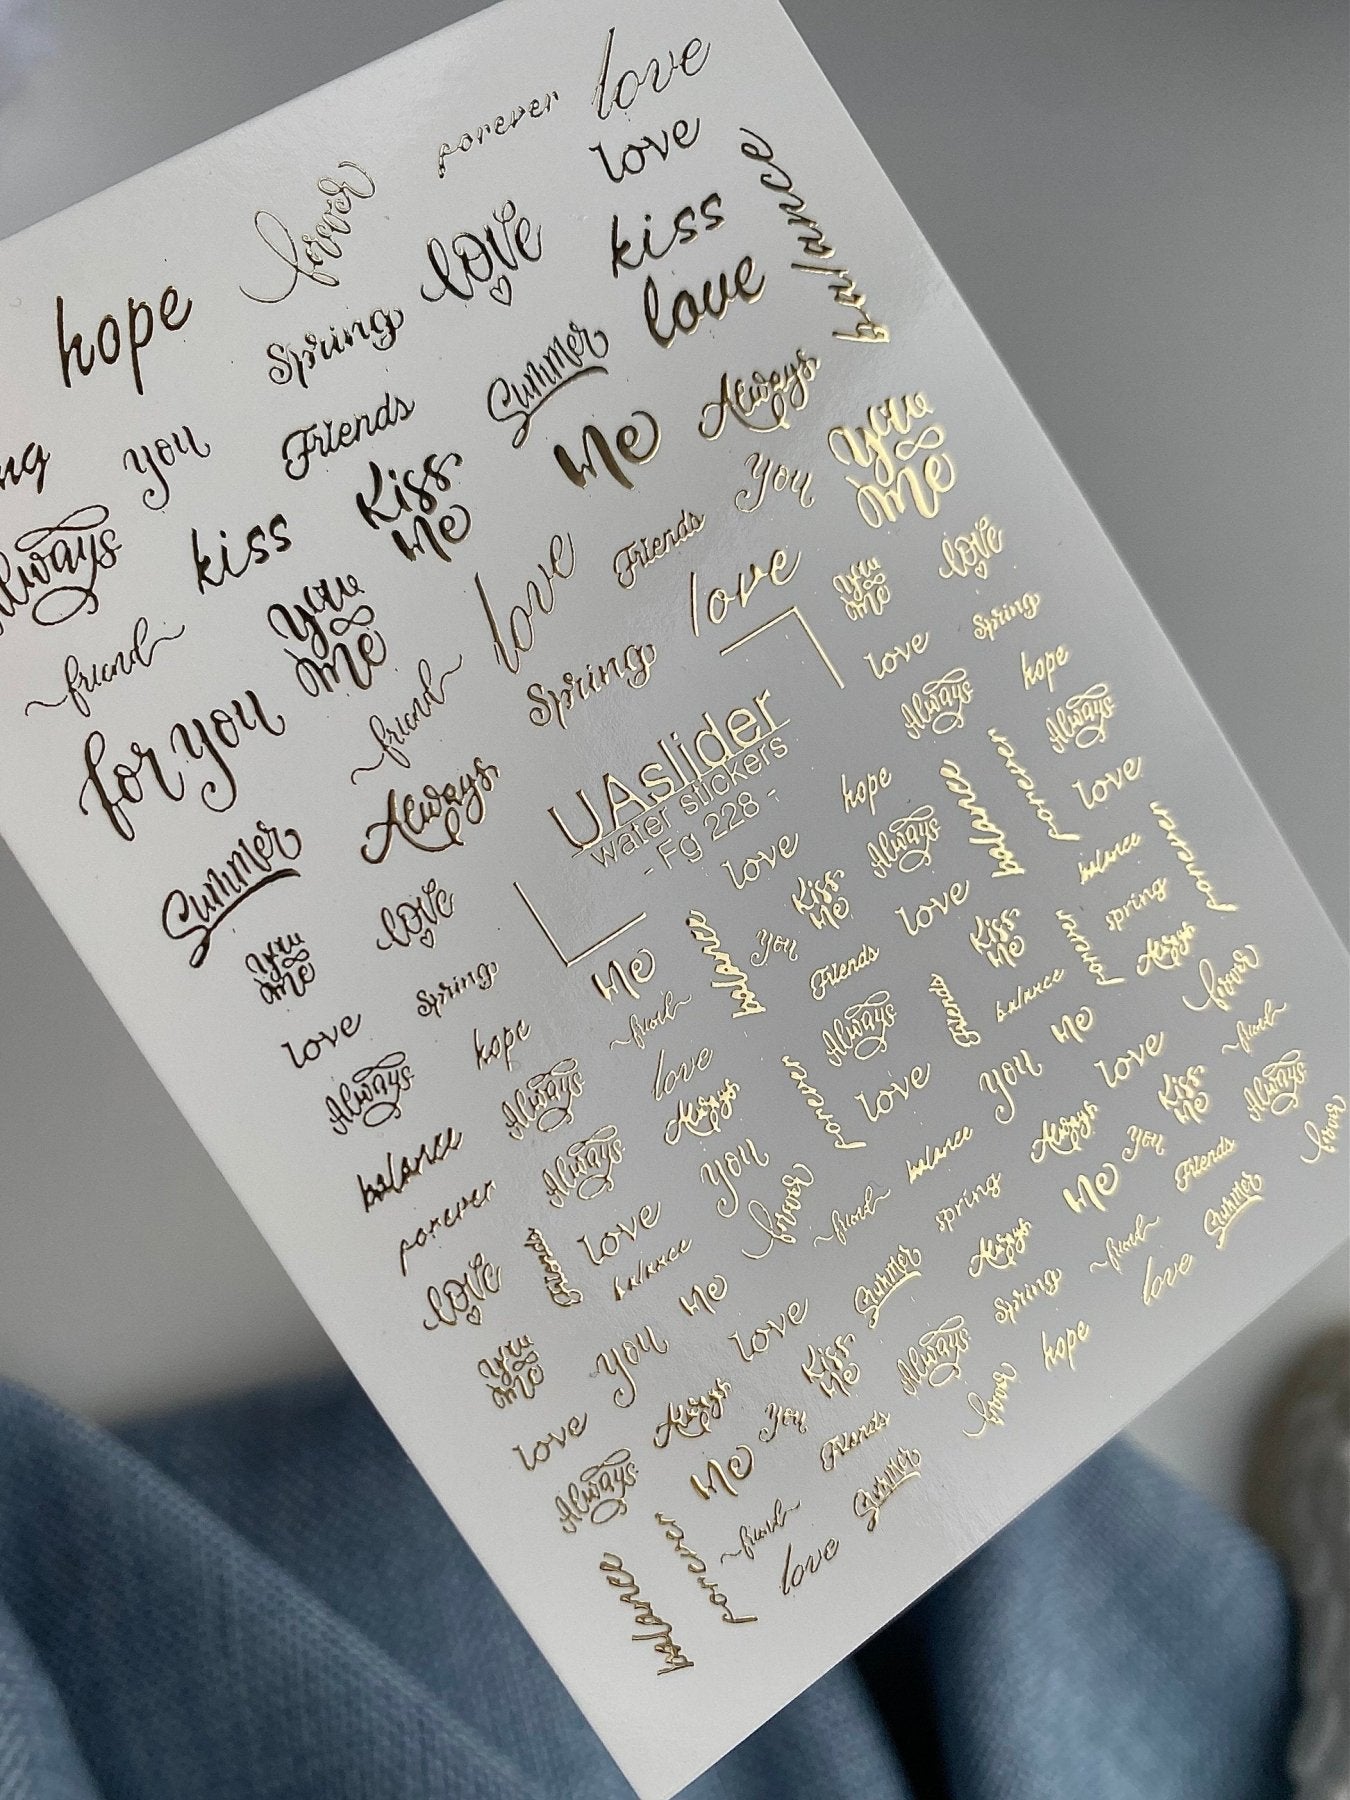 love
forever
love
forever
balance
love
kiss
hope
Spring
love
Summer
Always
you
Friends
Me
You
Me
Always
kiss
Kiss
Me
love
Friends
You
friend
You
Me
love
You
Me
love
for you
friend
Spring
love
Spring
Always
hope
Always
UAslider
water stickers
- Fg 228 -
hope
balance
forever
love
Summer
Always
love
Always
balance
forever
You
Me
love
love
Kiss
Me
love
spring
Spring
Me
balance
You
Friends
Kiss
Me
forever
Always
love
hope
friend
Always
Friends
balance
Me
forever
Always
Always
love
love
You
love
friend
balance
Always
Always
forever
balance
You
Kiss
Me
Always
forever
love
You
forever
friend
spring
Me
Friends
forever
love
Friends
balance
Me
Summer
Always
friend
Summer
You
Me
You
love
Kiss
Me
Always
Spring
love
love
Always
You
Friends
forever
hope
Always
Me
Summer
balance
forever
friend
love